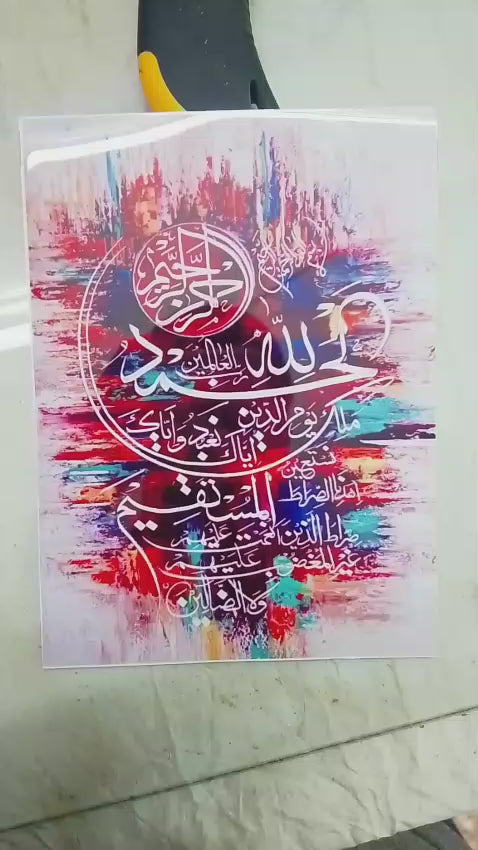 بسم الله الرحمن الرحيم
الحمد لله
رب العالمين
الرحمن الرحيم
ملك يوم الدين
إياك نعبد وإياك
نستعين
اهدنا الصراط
المستقيم
صراط الذين أنعمت عليهم
غير المغضوب عليهم
ولا الضالين